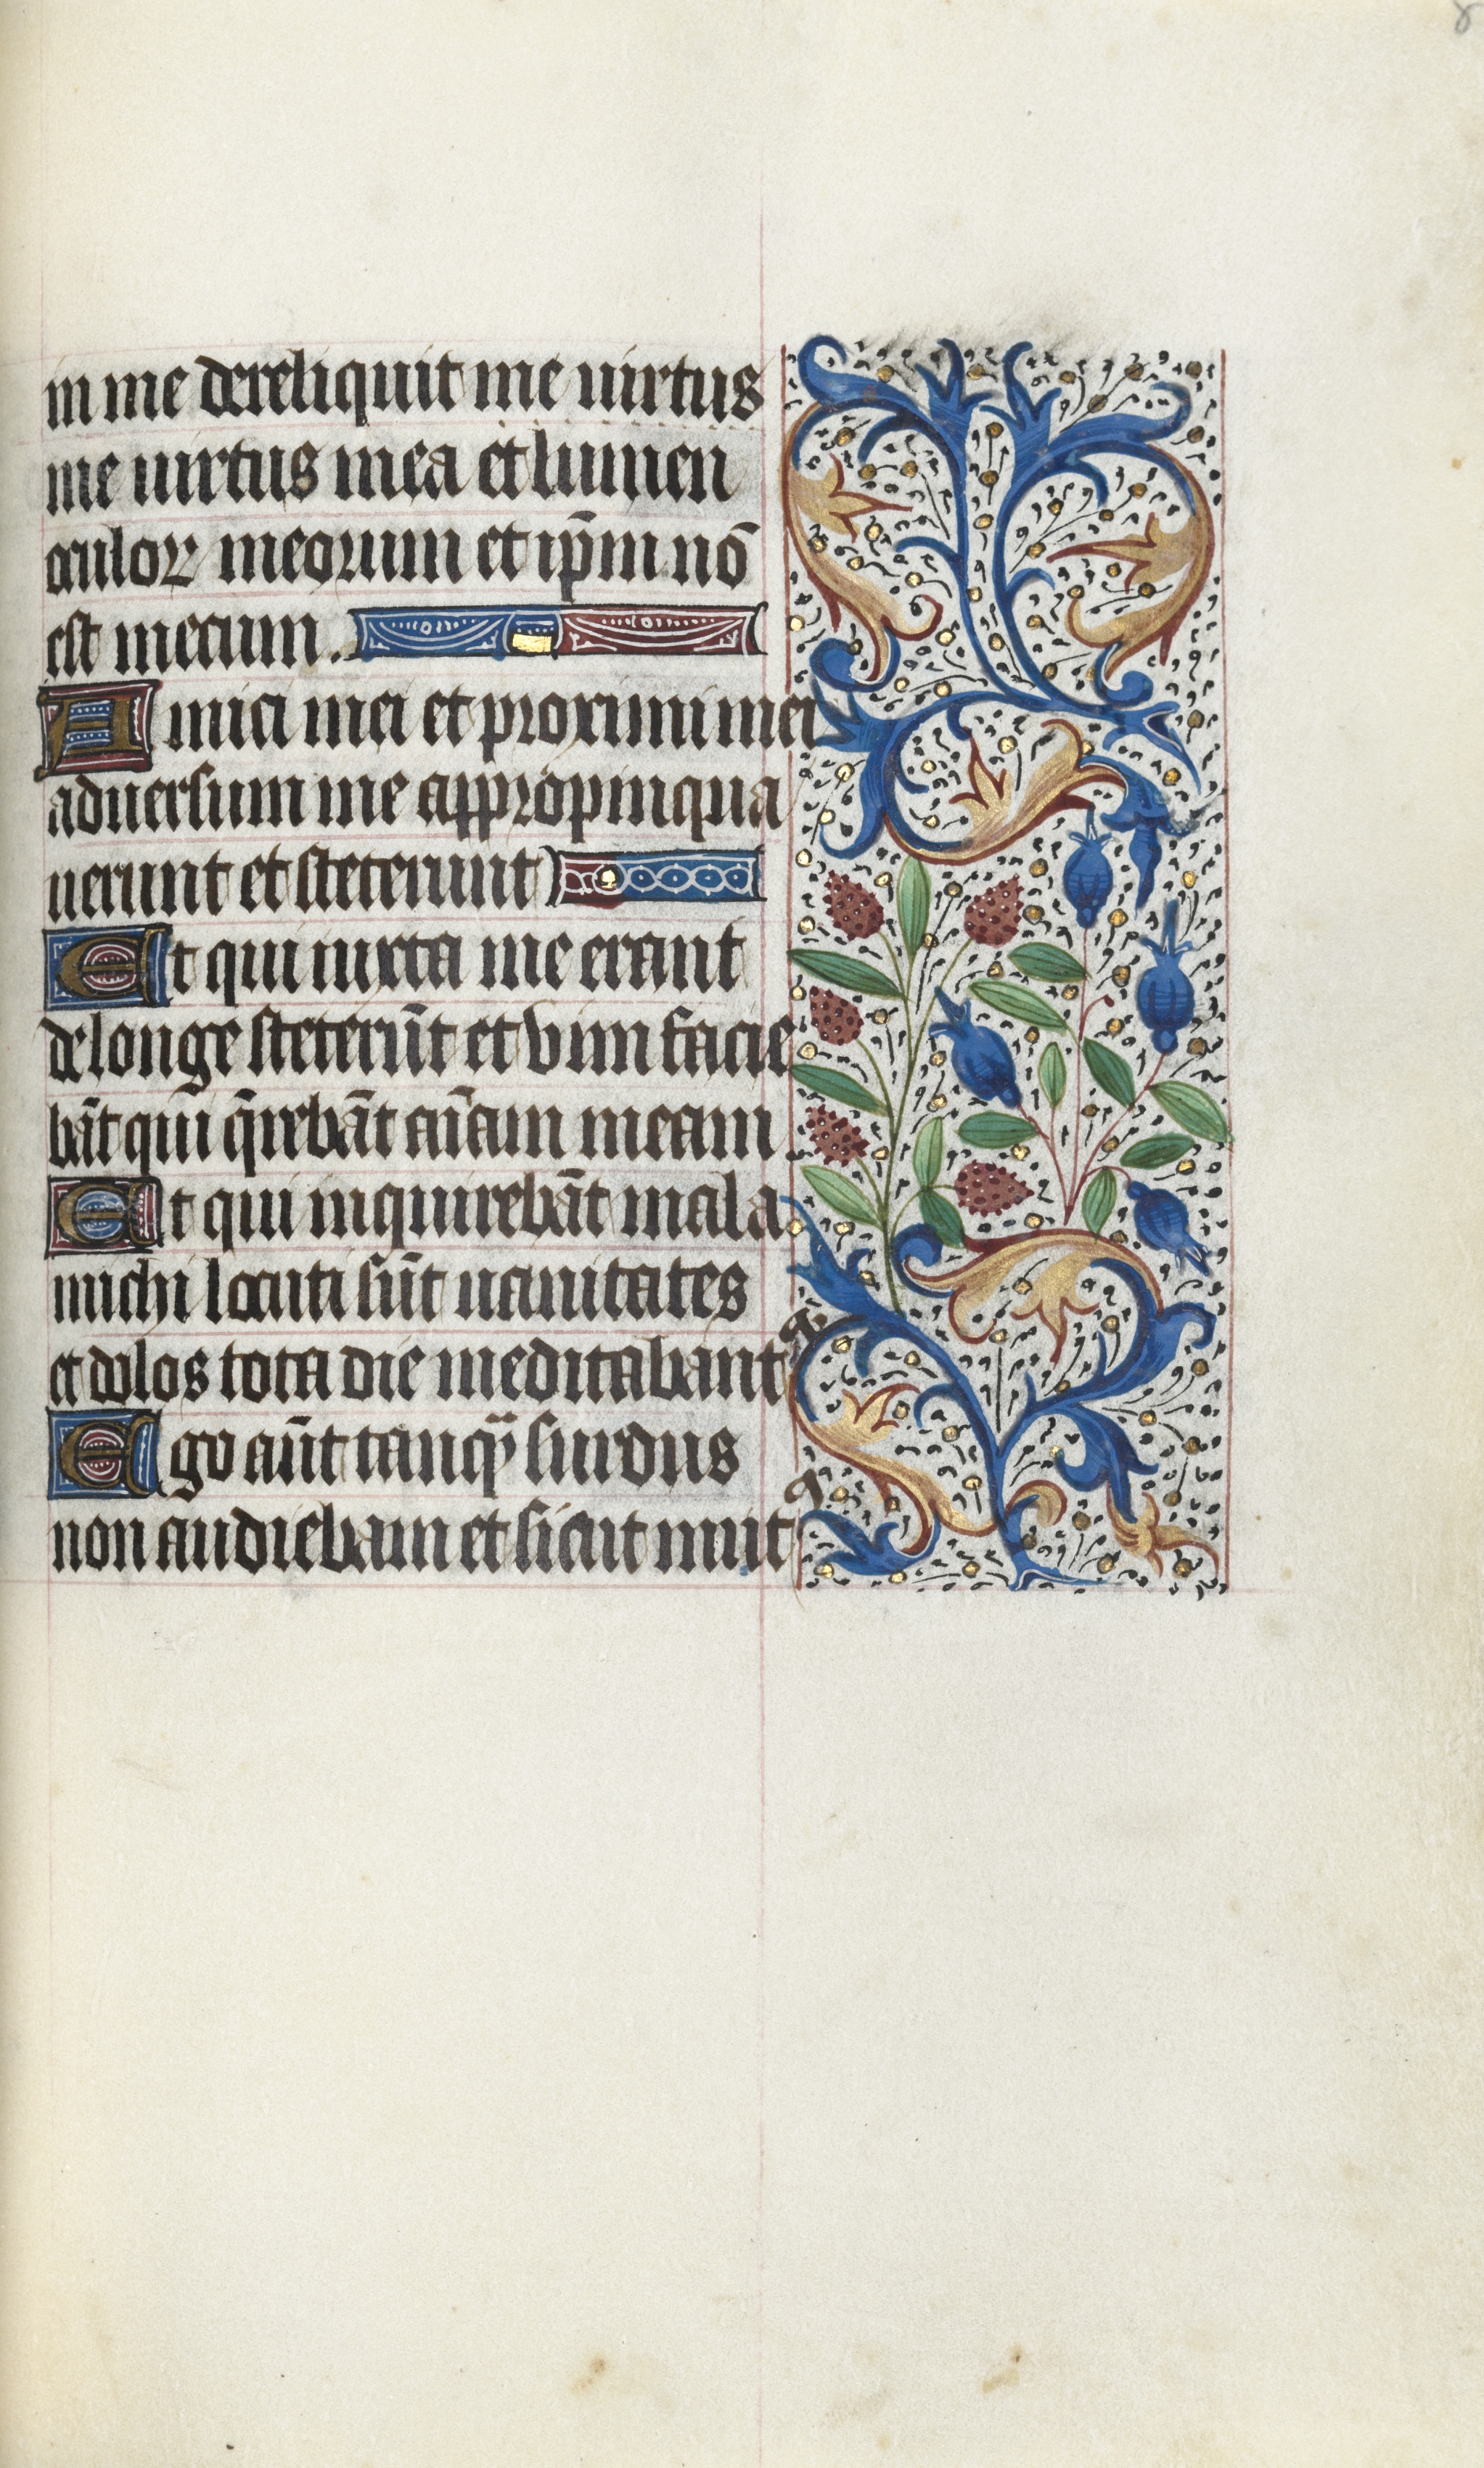 in me dereliquit me uirtus
me uirtus mea et lumen
oculoꝝ meorum et ip̄m nō
est mecum.
Amici mei et proximi mei
aduersum me appropinqua
uerunt et steterunt
Et qui iuxta me erant
de longe steterūt et vim facie
bāt qui q̄rebāt aīam meam
Et qui inquirebāt mala
michi locuti sūt uanitates
et dolos tota die meditabant᷑
Ego aūt tanqȝ surdus
non audiebam et sicut mut᷒